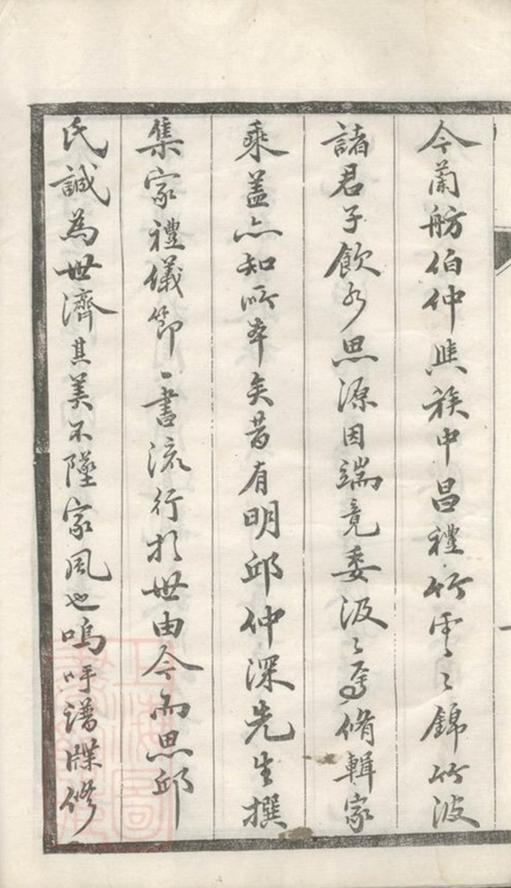 今蘭舫伯仲與族中昌禮竹雲雲錦竹波
諸君子飲水思源因端竟委汲汲焉脩輯家
乘蓋亦知所本矣昔有明邱仲深先生撰
集家禮儀節一書流行於世由今而思邱
氏誠為世濟其美不墜家風也嗚呼譜牒修